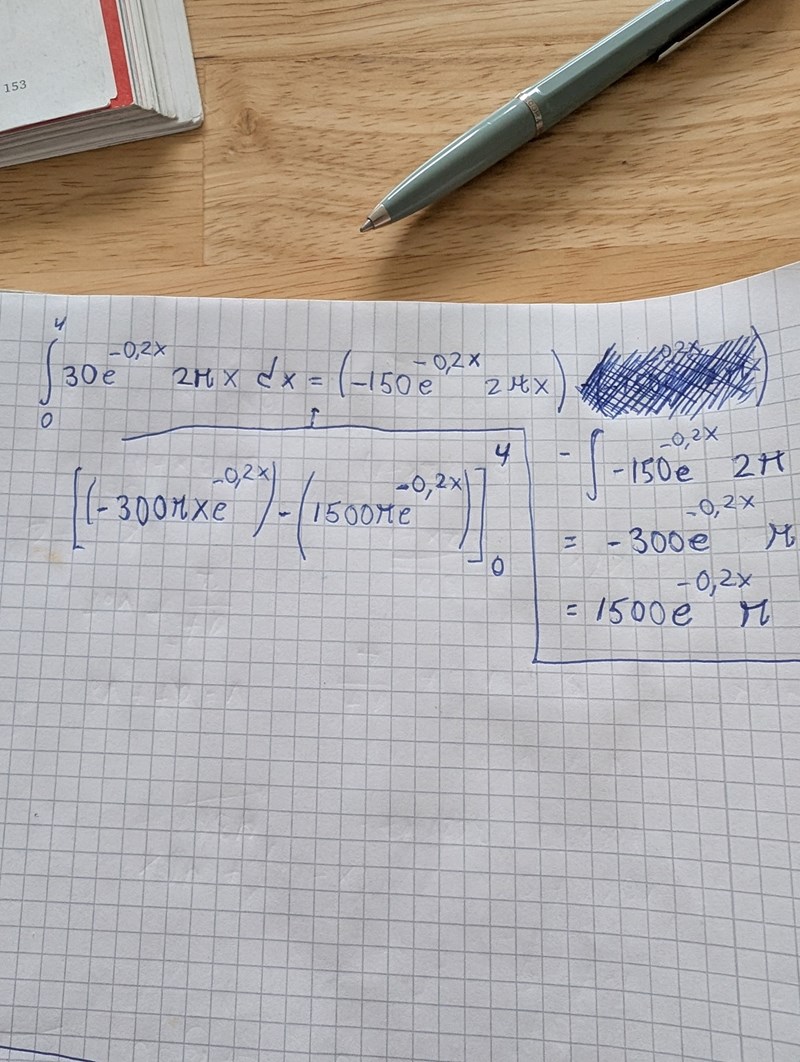 153
∫₀⁴ 30e^{-0,2x} 2πx dx = (-150e^{-0,2x} 2πx)
- ∫ -150e^{-0,2x} 2π
[(-300πxe^{-0,2x}) - (1500πe^{-0,2x})]₀⁴
= -300e^{-0,2x} π
= 1500e^{-0,2x} π